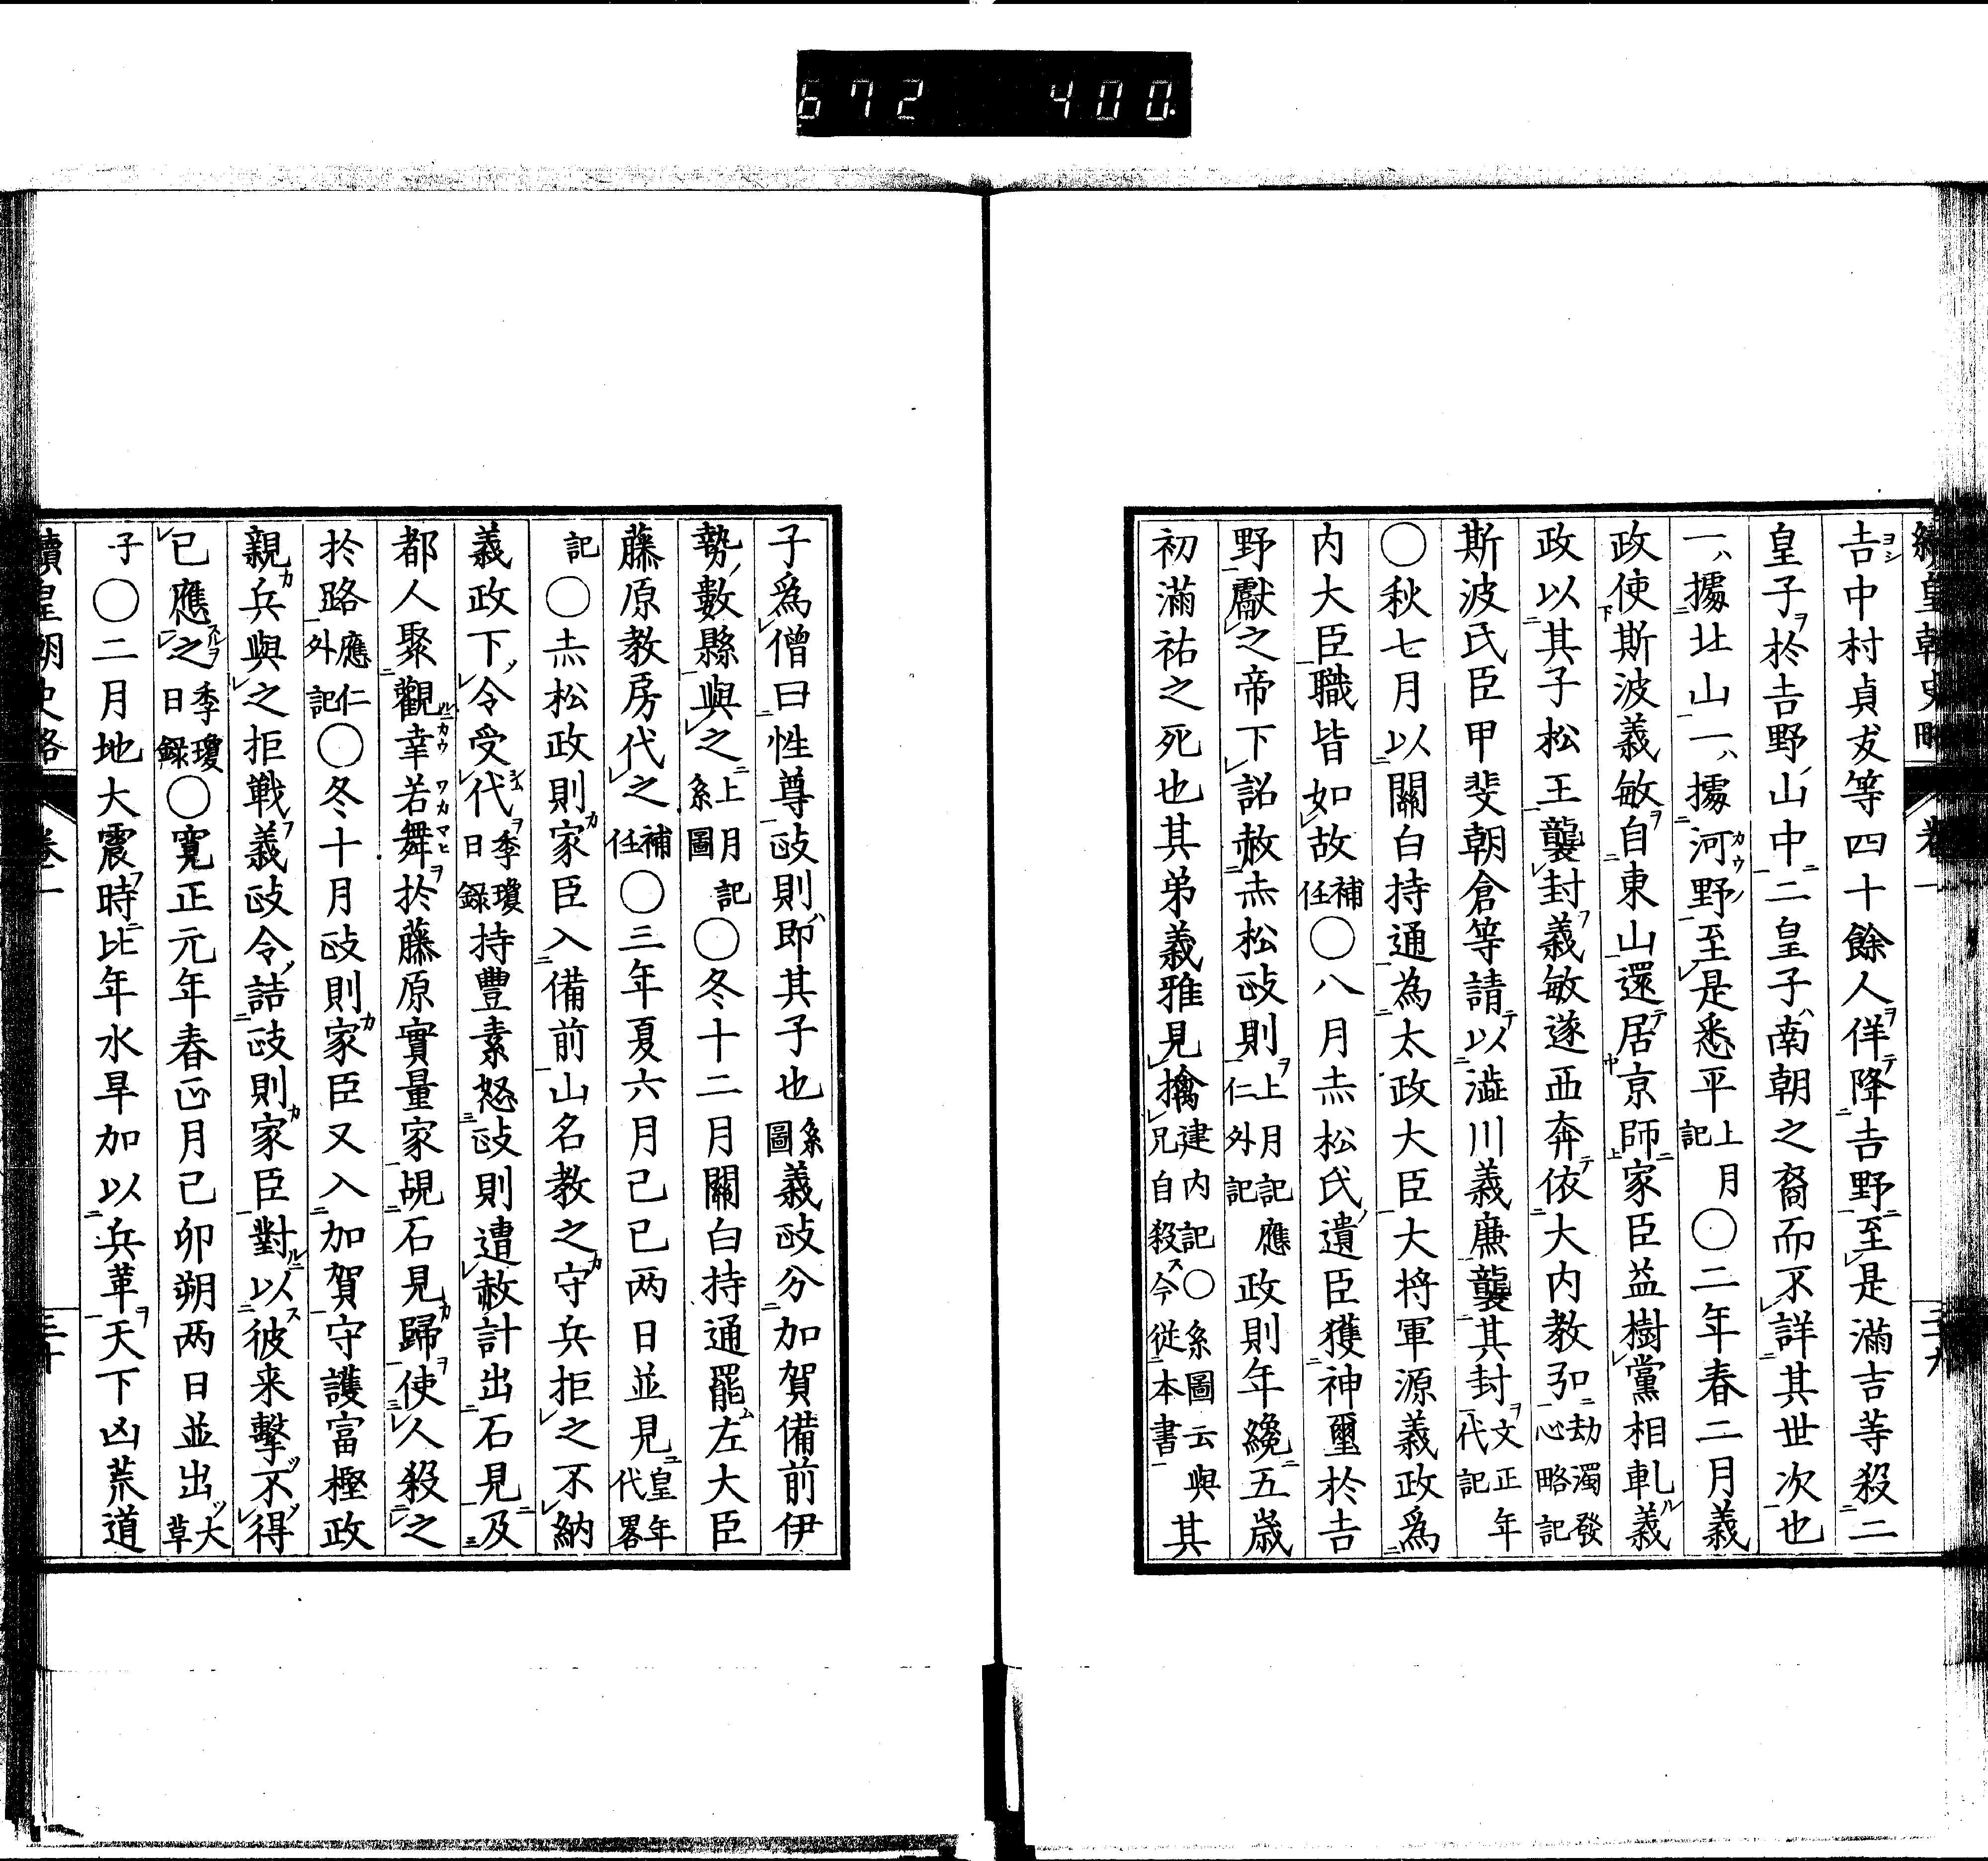 672 400
續皇朝史略 卷一
吉中村貞友等四十餘人佯降吉野至是滿吉等殺二
皇子於吉野山中二皇子南朝之裔而不詳其世次也
一據北山一據河野至是悉平上月記○二年春二月義
政使斯波義敏自東山還居京師家臣益樹黨相軋義
政以其子松王襲封義敏遂西奔依大内教弘劫濁發心略記
斯波氏臣甲斐朝倉等請以澁川義廉襲其封文正年代記
○秋七月以關白持通為太政大臣大将軍源義政爲
内大臣職皆如故補任○八月赤松氏遺臣獲神璽於吉
野獻之帝下詔赦赤松政則上月記應仁外記政則年纔五歳
初滿祐之死也其弟義雅見擒建内記○系圖云與其兄自殺今從本書其
子爲僧曰性尊政則即其子也系圖義政分加賀備前伊
勢數縣與之上月記系圖○冬十二月關白持通罷左大臣
藤原教房代之補任○三年夏六月己巳两日並見皇年代畧
記○赤松政則家臣入備前山名教之守兵拒之不納
義政下令受代季瓊日録持豐素怒政則遭赦計出石見及
都人聚觀幸若舞於藤原實量家覘石見歸使人殺之
於路應仁外記○冬十月政則家臣又入加賀守護富樫政
親兵與之拒戰義政令詰政則家臣對以彼来擊不得
已應之季瓊日録○寛正元年春正月己卯朔两日並出大草
子○二月地大震時比年水旱加以兵革天下凶荒道
續皇朝史略 卷一 三十